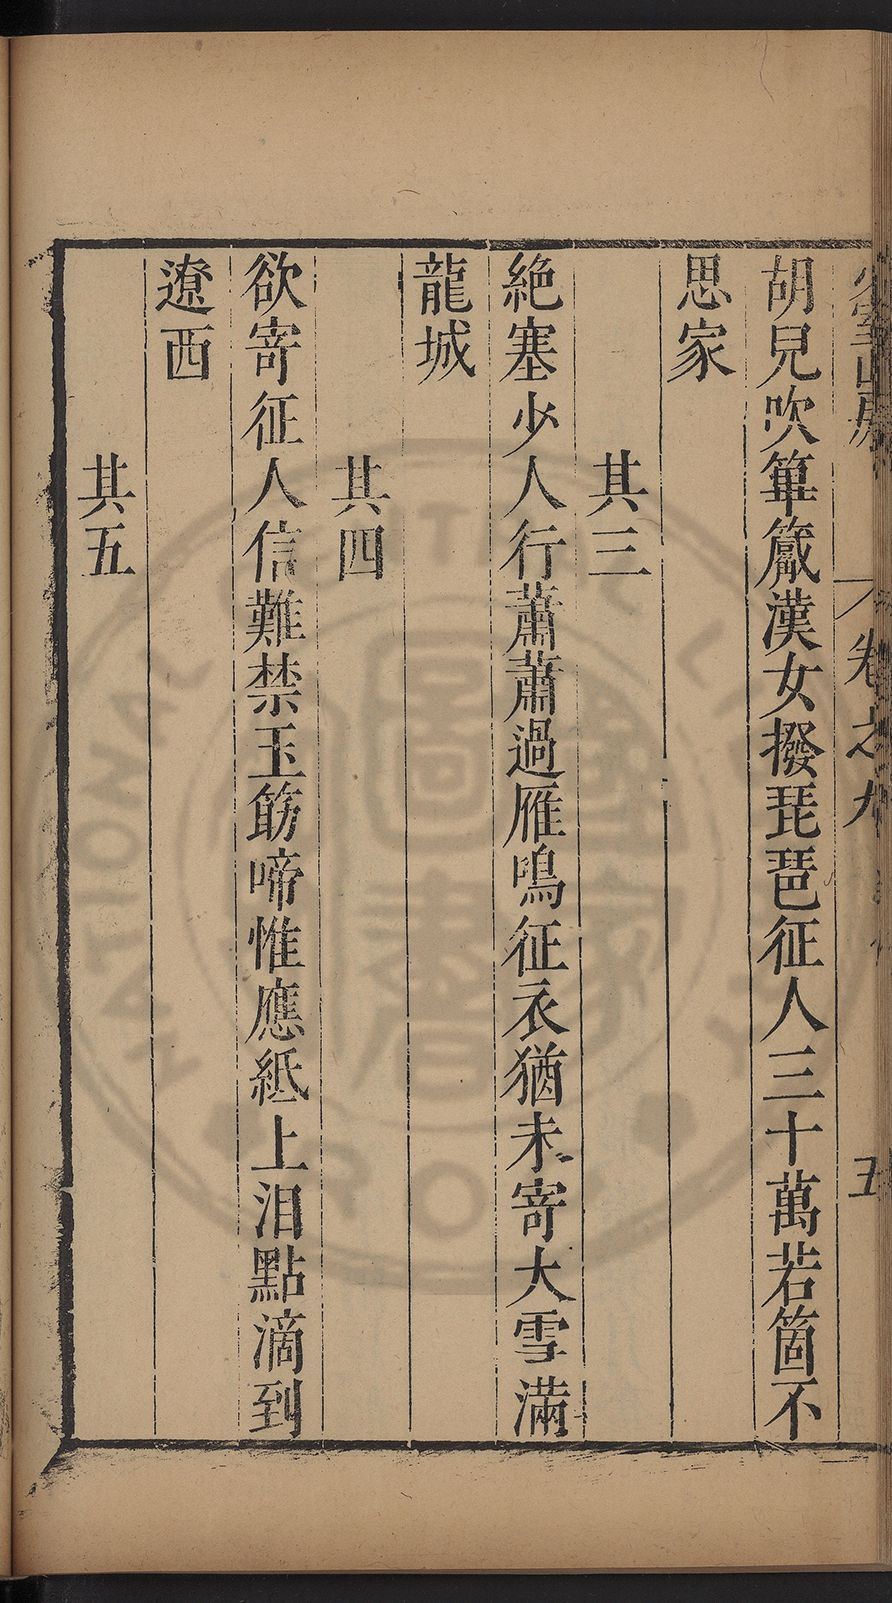 少室山房
卷之九
五
胡兒吹篳篥漢女撥琵琶征人三十萬若箇不
思家
其三
絕塞少人行蕭蕭過雁鳴征衣猶未寄大雪滿
龍城
其四
欲寄征人信難禁玉筯啼惟應紙上泪點滴到
遼西
其五